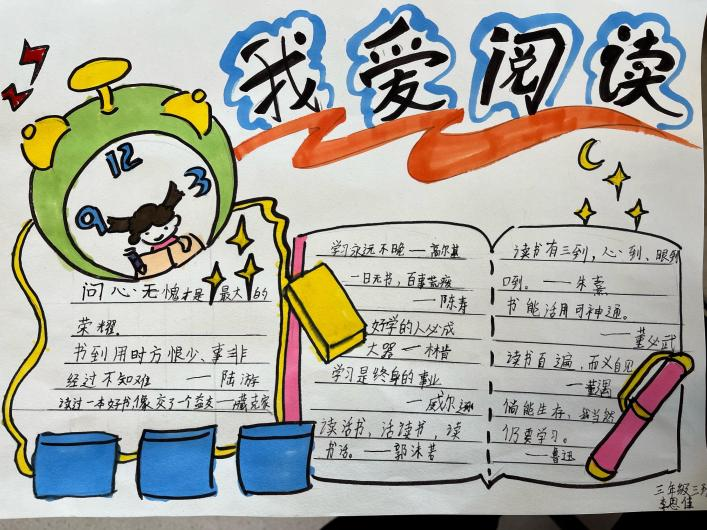 我爱阅读
12
3
9
问心无愧才是最大的
荣耀.
书到用时方恨少、事非
经过不知难 — 陆游
读过一本好书,像交了一个益友 — 臧克家
学习永远不晚 — 高尔基
一日无书，百事荒废
— 陈寿
好学的人必成
大器 — 林肯
学习是终身的事业
— 威尔逊
读活书，活读书，读
书活。— 郭沫若
读书有三到，心到、眼到
口到。— 朱熹
书能活用可神通。
— 董必武
读书百遍，而义自见
— 董遇
倘能生存，我当然
仍要学习。
— 鲁迅
三年级三班
李恩佳